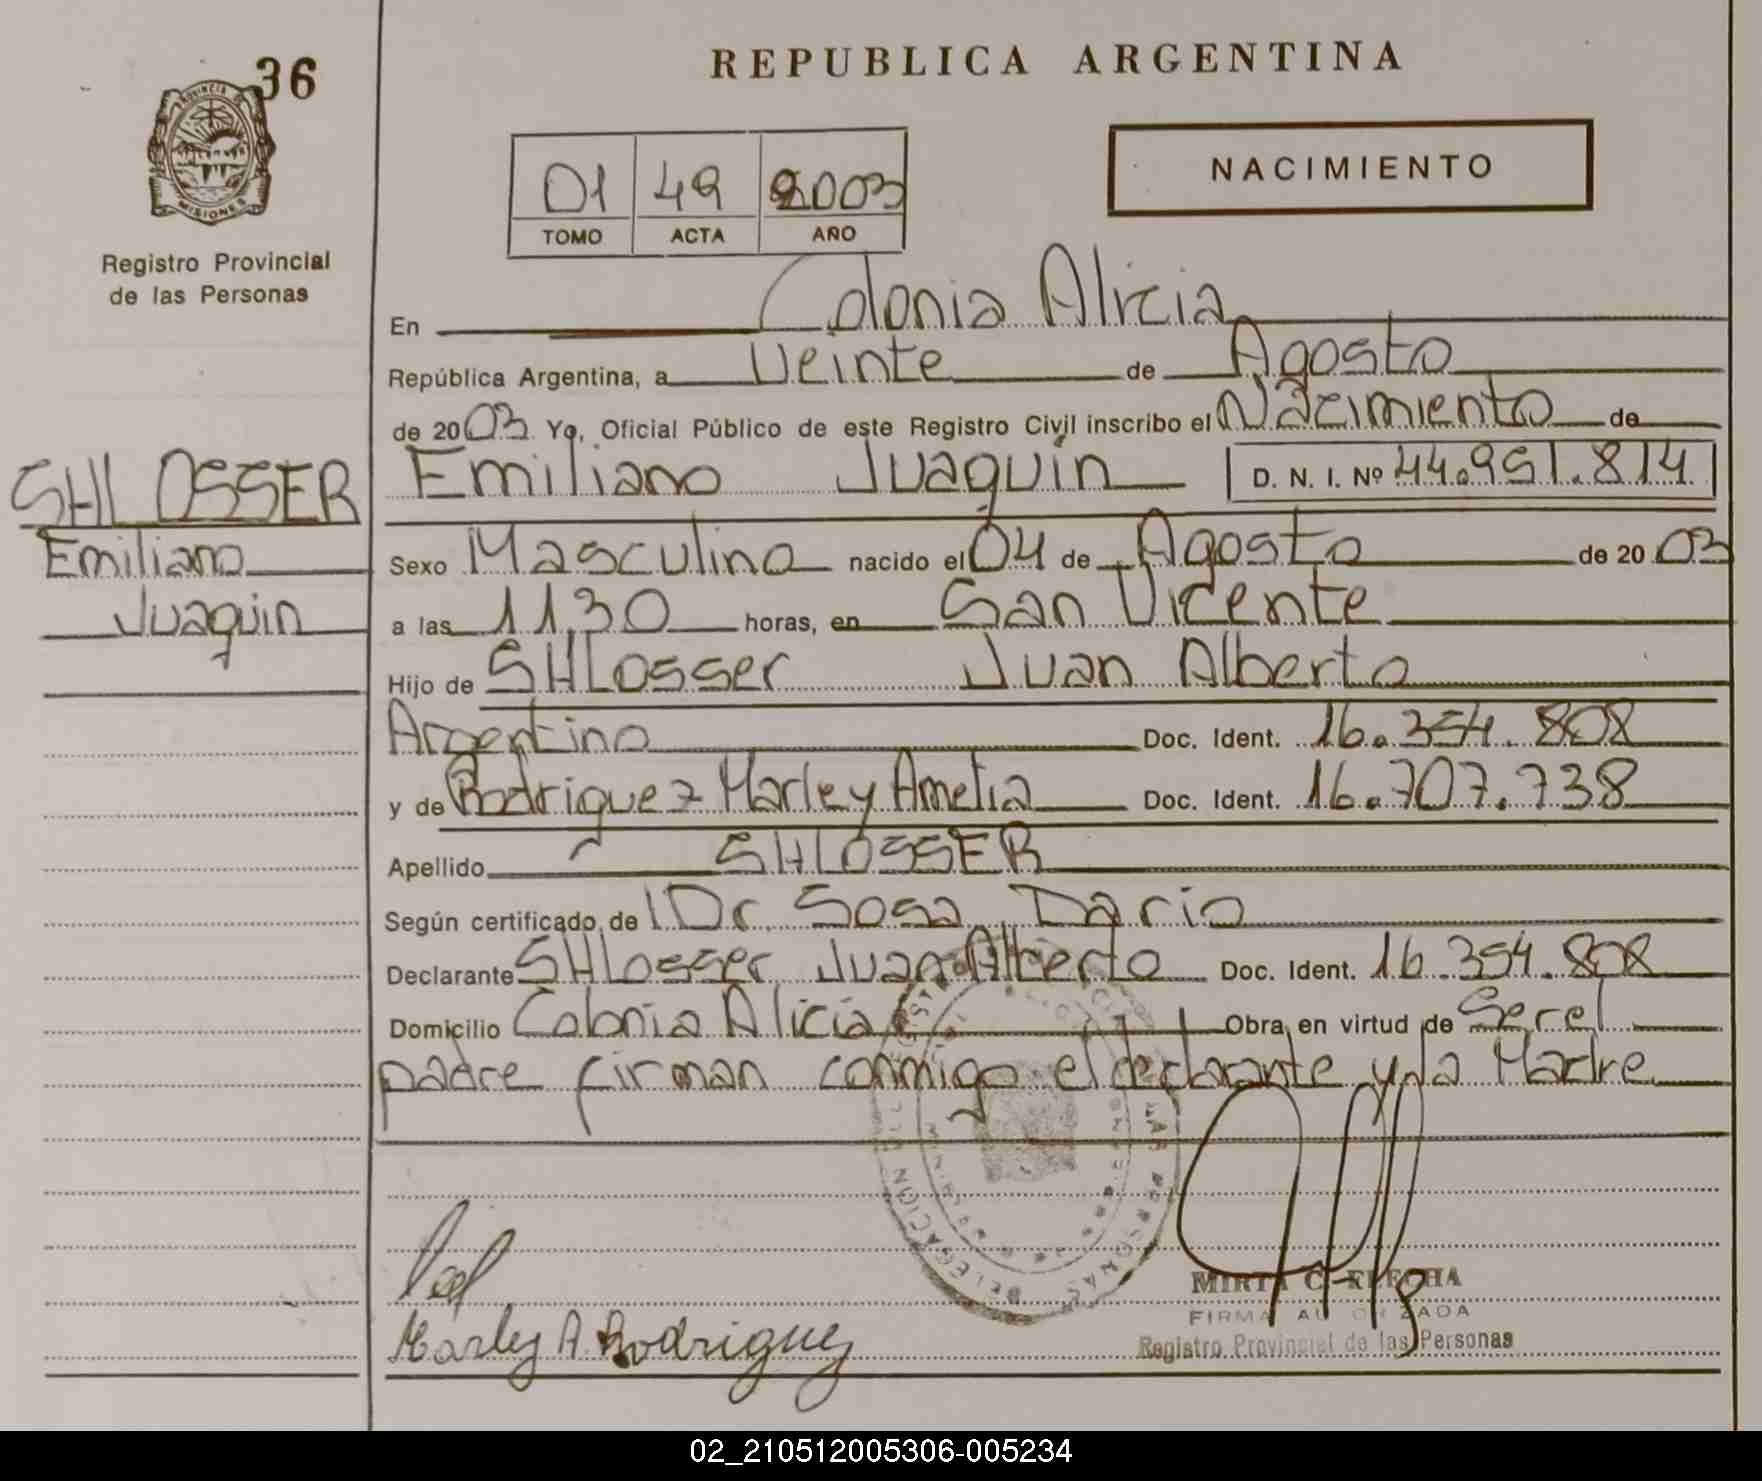 36
PROVINCIA DE
MISIONES
Registro Provincial
de las Personas
SHLOSSER
Emiliano
Juaquin
REPUBLICA ARGENTINA
NACIMIENTO
01 49 2003
TOMO ACTA AÑO
En Colonia Alicia
República Argentina, a Veinte de Agosto
de 2003 Yo, Oficial Público de este Registro Civil inscribo el Nacimiento de
Emiliano Juaquin D. N. I. Nº 44.951.814
Sexo Masculino nacido el 04 de Agosto de 2003
a las 11,30 horas, en San Vicente
Hijo de SHLosser Juan Alberto
Argentino Doc. Ident. 16.354.808
y de Rodriguez Marley Amelia Doc. Ident. 16.707.738
Apellido SHLOSSER
Según certificado de Dr. Sosa Dario
Declarante SHLosser Juan Alberto Doc. Ident. 16.354.808
Domicilio Colonia Alicia Obra en virtud de Ser el
padre firman conmigo el declarante y la Madre
DELEGACION
Marley A. Rodriguez
MIRTA C. FLECHA
FIRMA AUTORIZADA
Registro Provincial de las Personas
02_210512005306-005234